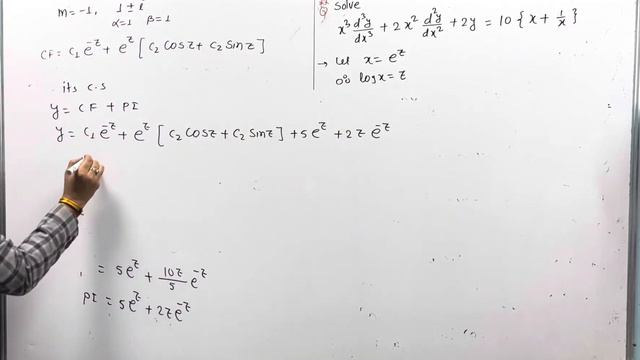 m=-1, 1±i
α=1 β=1
CF = C₁e⁻ᶻ + eᶻ [C₂ Cosz + C₂ Sinz]
its C.S
y = CF + PI
y = C₁e⁻ᶻ + eᶻ [C₂ Cosz + C₂ Sinz] + 5eᶻ + 2z e⁻ᶻ
= 5eᶻ + 10z/5 e⁻ᶻ
PI = 5eᶻ + 2ze⁻ᶻ
Q Solve
x³ d³y/dx³ + 2x² d²y/dx² + 2y = 10 {x + 1/x}
→ Let x = eᶻ
∴ logx = z